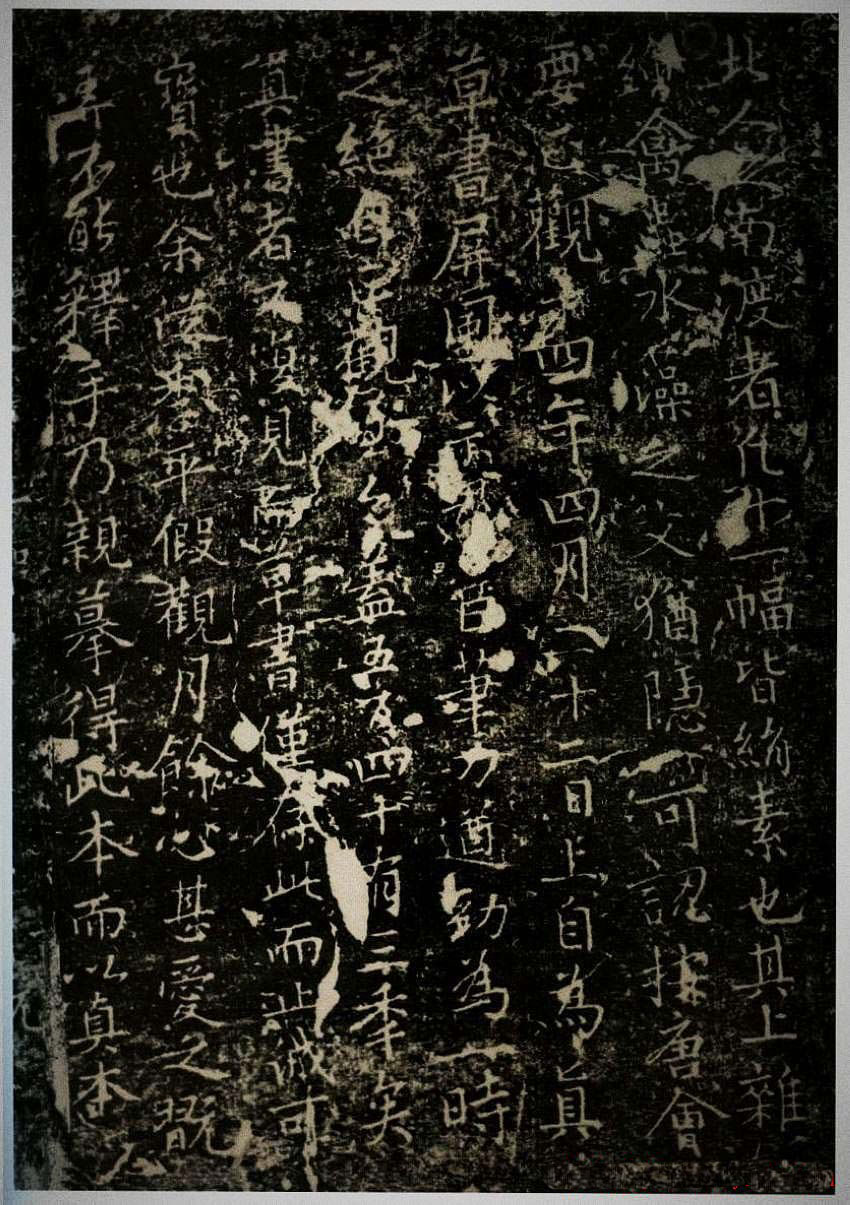 北人之南渡者凡十一幅皆絹素也其上雜
繪禽蟲水藻之文猶隱可認按唐會
要正觀十四年四月二十二日上自為真
草書屏風以示臣筆力遒勁為一時
之絕自正觀至今蓋五百四十有三秊矣
真書者不復見而草書僅存此而止誠可
寶也余平假觀月餘心甚愛之翫
弄不能釋手乃親摹得此本而以真